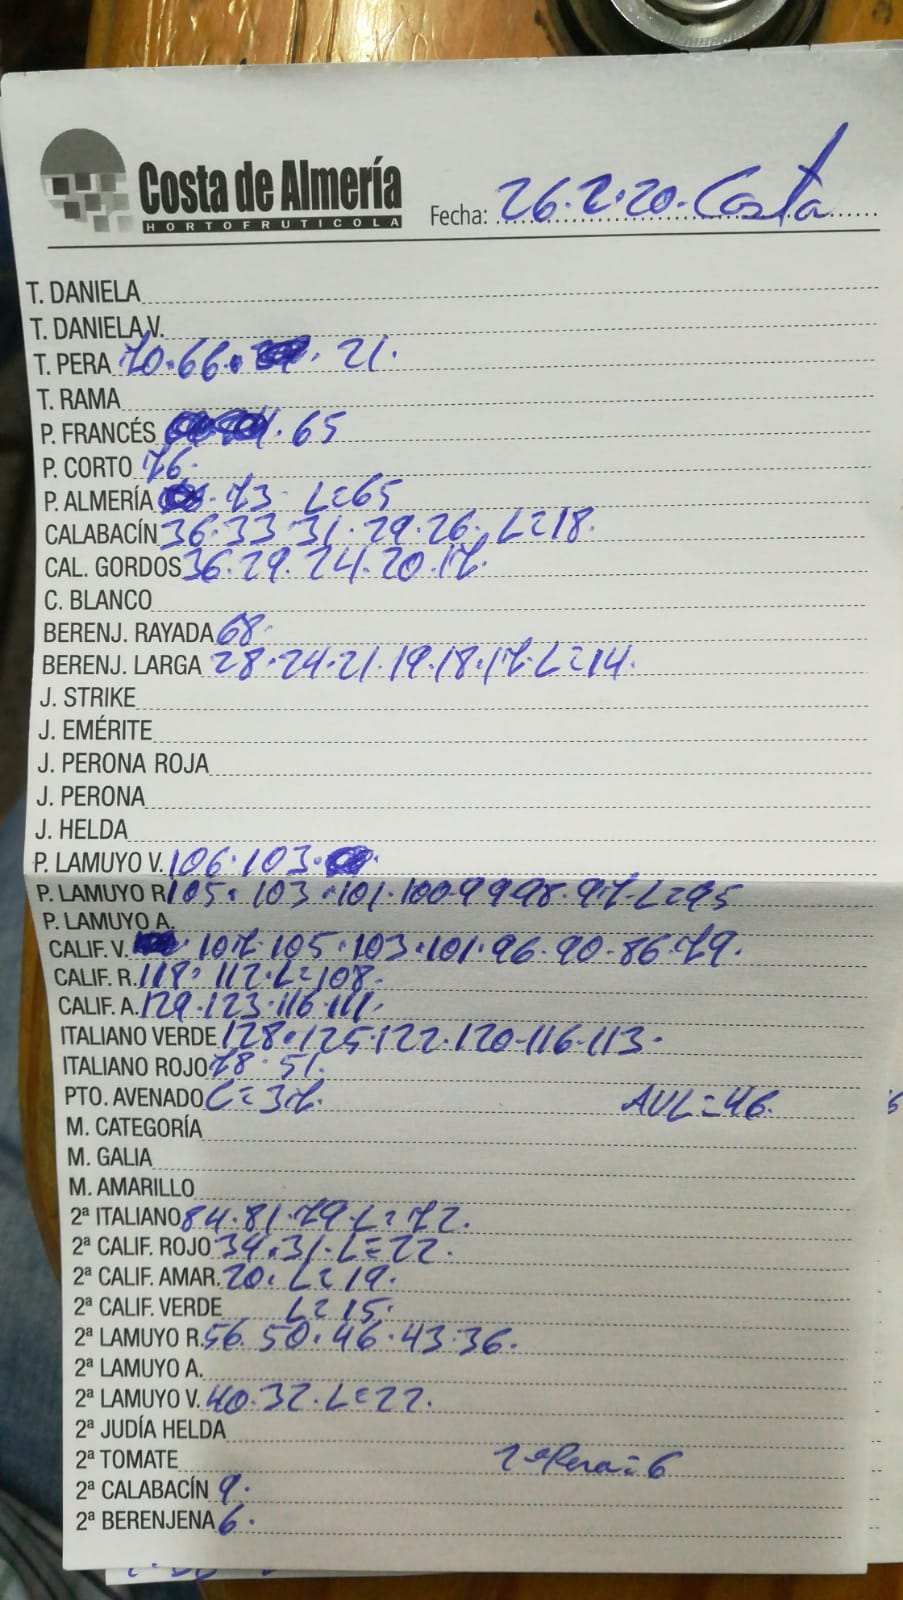 Costa de Almería
HORTOFRUTICOLA
Fecha: 26.2.20. Costa
T. DANIELA
T. DANELA V.
T. PERA 70.66. 21.
T. RAMA
P. FRANCÉS 65
P. CORTO 76.
P. ALMERÍA 73. L=65
CALABACÍN 36.33.31.29.26. L=18.
CAL. GORDOS 36.29.24.20.17.
C. BLANCO
BERENJ. RAYADA 68.
BERENJ. LARGA 28.24.21.19.18.17.L=14.
J. STRIKE
J. EMÉRITE
J. PERONA ROJA
J. PERONA
J. HELDA
P. LAMUYO V. 106.103.
P. LAMUYO R 105.103.101.100-99 98.97-L=95
P. LAMUYO A.
CALIF. V. 107.105.103.101.96.90.86.79.
CALIF. R. 118. 112.L=108.
CALIF. A. 129.123.116.111.
ITALIANO VERDE 128.125.122.120-116-113.
ITALIANO ROJO 78.51.
PTO. AVENADO L=37. AVL=46.
M. CATEGORÍA
M. GALIA
M. AMARILLO
2ª ITALIANO 84.81.79-L=72.
2ª CALIF. ROJO 34.31.L=22.
2ª CALIF. AMAR. 20. L=19.
2ª CALIF. VERDE L=15.
2ª LAMUYO R. 56.50.46.43.36.
2ª LAMUYO A.
2ª LAMUYO V. 40.32.L=22.
2ª JUDÍA HELDA
2ª TOMATE 2ª Pera=6
2ª CALABACÍN 9.
2ª BERENJENA 6.